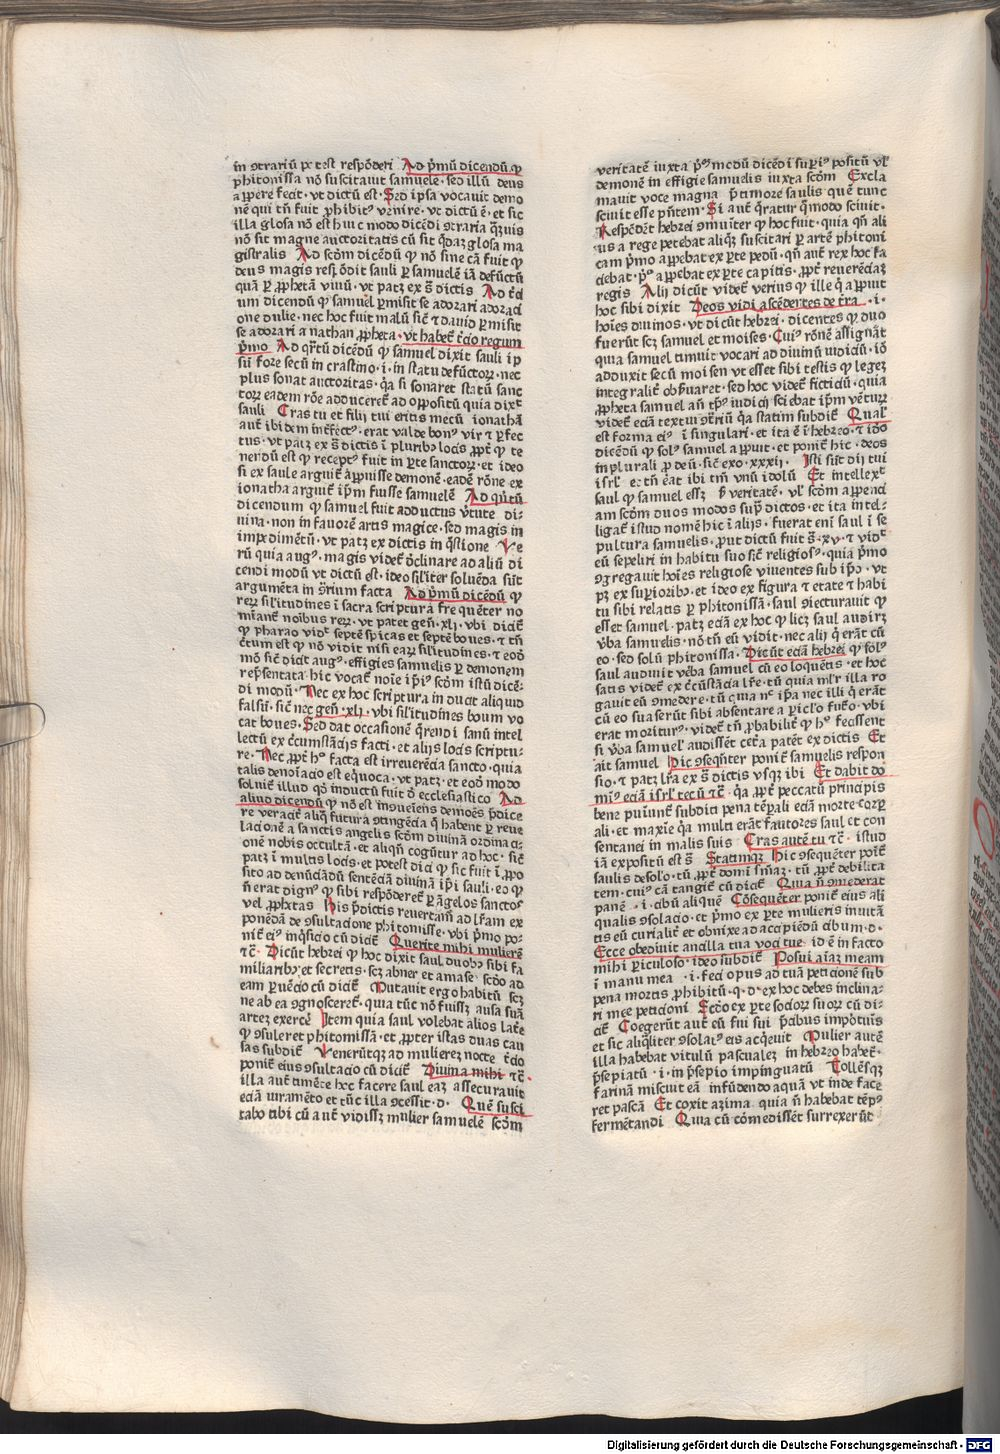 in ꝯtrariũ potest respõderi Ad p̃mũ dicendũ ꝙ
phitonissa nõ suscitauit samuelẽ · sed illũ deus
apꝑere fecit · vt dictũ est · Sed ip̃sa vocauit demo
nẽ qui tñ fuit ꝓhibitꝰ venire · vt dictũ ẽ · et sic
illa glosa nõ est huic modo dicẽdi ꝯtraria q̃zuis
nõ sit magne auctoritatis cũ sit q̃daz glosa ma
gistralis Ad scd̃m dicẽdũ ꝙ nõ sine cã fuit ꝙ
deus magis resp̃õdit sauli ꝑ samuelẽ iã defũctũ
quã ꝑ ꝓphetã viuũ · vt patz ex s̃ dictis Ad t̃ci
um dicendũ ꝙ samuel ꝑmisit se adorari adoraci
one dulie · nec hoc fuit malũ sic̃ ⁊ dauid ꝑmisit
se adorari a nathan ꝓpheta · vt habet̃ t̃cio regum
p̃mo Ad q̃rtũ dicẽdũ ꝙ samuel dixit sauli ip
sũ fore secũ in crastino · i · in statu defũctoꝝ · nec
plus sonat auctoritas · q̃a si sonaret statũ sanc
toꝝ eadem rõe adduceret̃ ad oppositũ quia dixit
sauli Cras tu et filij tui eritis mecũ ionathã
aut̃ ibidem int̃fectꝰ · erat valde bonꝰ vir ⁊ ꝑfec
tus · vt patz ex s̃ dictis ĩ pluribꝰ locis ꝓpt̃ ꝙ te
nendũ est ꝙ receptꝰ fuit in ꝑte sanctoꝝ · et ideo
si ex saule arguit̃ apꝑuisse demonẽ · eadẽ rõne ex
ionatha arguit̃ ip̃m fuisse samuelẽ Ad qũtũ
dicendum ꝙ samuel fuit adductus ṽtute di-
uina · non in fauorẽ artis magice · sed magis in
impedimẽtũ · vt patz ex dictis in q̃stione Ve
rũ quia augꝰ · magis videt̃ d̃clinare ad aliũ di
cendi modũ vt dictũ est · ideo sil̃iter soluẽda sũt
argumẽta in ꝯ̃rium facta Ad p̃mũ dicẽdũ ꝙ
reꝝ sil̃itudines ĩ sacra scriptura freq̃uẽter no
mĩant̃ noĩbus reꝝ · vt patet geñ · xlj · vbi dicit̃
ꝙ pharao vidt̃ septẽ spicas et septẽ boues · ⁊ tñ
c̃tum est ꝙ nõ vidit nisi eaꝝ sil̃itudines · ⁊ eodẽ
mõ sic̃ dicit augꝰ · effigies samuelis ꝑ demonem
rep̃sentata · hic vocat̃ noĩe ip̃iꝰ scd̃m istũ dicẽ-
di modũ · Nec ex hoc scriptura inducit aliquid
falsũ · sic̃ nec geñ · xlj · vbi sil̃itudines boum vo
cat boues · Sed dat occasionẽ q̃rendi sanũ intel
lectũ ex c̃cumstãcijs facti · et alijs locis scriptu-
re · Nec ꝓpt̃ hͦ facta est irreuerẽcia sancto · quia
talis denoĩacio est eq̃uoca · vt patz · et eod̃ modo
soluit̃ illud qd̃ inductũ fuit d̃ ecclesiastico Ad
aliud dicendũ ꝙ nõ est incõueniẽns demões p̃dice
re veracit̃ aliq̃ futura ꝯtingẽcia q̃ habent ꝑ reue
lacionẽ a sanctis angelis scd̃m diuinã ordinaci-
onẽ nobis occultã · et aliqñ cogũtur ad hoc · sic̃
patz ĩ multis locis · et potest dici ꝙ sic fuit ĩ ꝓpo
sito ad denũciãdũ sentẽciã diuinã ip̃i sauli · eo ꝙ
ñ erat dignꝰ ꝙ sibi respõderet̃ ꝑ ãgelos sanctos
vel ꝓphetas His p̃dictis reuertam̃ ad lr̃am ex
ponẽdã de ꝯsultacione phitonisse · vbi p̃mo po-
nit̃ eiꝰ inq̃sicio cũ dicit̃ Querite mihi mulierẽ
⁊c̃ · Dicũt hebrei ꝙ hoc dixit saul duobꝰ sibi fa
miliaribꝫ et secretis · scꝫ abner et amase · scd̃o ad
eam ꝑuẽcio cũ dicit̃ Mutauit ergo habitũ scꝫ
ne ab ea ꝯgnosceret̃ · quia tũc nõ fuissꝫ ausa suã
artez exercẽ Item quia saul volebat alios lat̃e
ꝙ ꝯsuleret phitonissã · et ꝓpter istas duas cau
sas subdit̃ Venerũtqꝫ ad mulierez nocte t̃cio
ponit̃ eius ꝯsultacio cũ dicit̃ Diuina mihi ⁊c̃ ·
illa aut̃ timẽte hoc facere saul eaz assecurauit
eciã iuramẽto et tũc illa ꝯcessit · d · Quẽ susci
tabo tibi cũ aut̃ vidissꝫ mulier samuelẽ scd̃m
veritatẽ iuxta p̃ꝰ modũ dicẽdi suꝑiꝰ positũ vl̃
demonẽ in effigie samuelis iuxta scd̃m Excla
mauit voce magna p̃ timore saulis quẽ tunc
sciuit esse p̃ñtem · Si aut̃ q̃ratur q̃modo sciuit ·
Respõdẽt hebrei ꝯmũiter ꝙ hoc fuit · quia qñ ali
us a rege petebat aliq̃z suscitari ꝑ artẽ phitoni
cam p̃mo apꝑebat ex ꝑte pedũ · qñ aut̃ rex hoc fa
ciebat · p̃ꝰ apꝑebat ex ꝑte capitis · ꝓpt̃ reuerẽciaz
regis Alij dicũt videt̃ verius ꝙ ille q̃ apꝑuit
hoc sibi dixit Deos vidi ascẽdentes de t̃ra · i ·
hoĩes diuinos · vt dicũt hebrei · dicentes ꝙ duo
fuerũt scꝫ samuel et moises · Cuiꝰ rõnẽ assignãt
quia samuel timuit vocari ad diuinũ iudiciũ · iõ
adduxit secũ moisen vt esset sibi testis ꝙ legez
integralit̃ obseruaret · sed hoc videt̃ ficticiũ · quia
ꝓpheta samuel añ tp̃ꝰ iudicij sciebat ip̃m vẽturũ
videt̃ eciã textui ꝯ̃riũ q̃a statim subdit̃ Qual̃
est forma eiꝰ ĩ singulari · et ita ẽ ĩ hebreo · ⁊ iõ
dicẽdũ ꝙ solꝰ samuel apꝑuit · et ponit̃ hic · deos
in plurali ꝓ deũ · sic̃ exo · xxxij · Isti sũt dij tui
isrl̃ · et tñ eãt ibi tm̃ vnũ idolũ Et intellext̃
saul ꝙ samuel essꝫ s̃ veritatẽ · vl̃ scd̃m apꝑenci
am scd̃m duos modos sup̃ dictos · et ita intel-
ligat̃ istud nomẽ hic ĩ alijs · fuerat eni saul ĩ se
pultura samuelis · ꝓut dictũ fuit s̃ · xv · ⁊ vidt̃
eũ sepeliri in habitu suo sic̃ religiosꝰ · quia p̃mo
ꝯgregauit hoĩes religiose viuentes sub ip̃o · vt
pꝫ ex suꝑioribꝰ · et ideo ex figura ⁊ etate ⁊ habi
tu sibi relatis ꝑ phitonissã · saul ꝯiecturauit ꝙ
esset samuel · patz eciã ex hoc ꝙ licꝫ saul audirꝫ
ṽba samuelis · nõ tñ eũ vidit · nec alij q̃ erãt cũ
eo · sed solũ phitonissa · Dicũt eciã hebrei ꝙ solꝰ
saul audiuit ṽba samuel cũ eo loquẽtis · et hoc
satis videt̃ ex c̃cũstãcia lr̃e · tũ quia ml̃r illa ro
gauit eũ ꝯmedere · tũ quia nͨ ip̃a nec illi q̃ erãt
cũ eo suaserũt sibi absentare a ꝑiclo fut̃o · vbi
erat moriturꝰ · videt̃ tñ ꝓbabilit̃ ꝙ hͦ fecissent
si ṽba samuel̃ audissẽt cet̃a patẽt ex dictis Et
ait samuel Hic ꝯseq̃nter ponit̃ samuelis respon
sio · ⁊ patz lr̃a ex s̃ dictis vsqꝫ ibi Et dabit do
miꝰ eciã isrl̃ tecũ ⁊c̃ · q̃a ꝓpt̃ peccatũ principis
bene puĩunt̃ subditi pena tẽꝑali eciã morte corꝑ
ali · et maxĩe q̃a multi erãt fautores saul et con
sentanei in malis suis Cras autẽ tu ⁊c̃ · istud
iã expositũ est s̃ Statimqꝫ Hic ꝯseq̃nter põit̃
saulis desolo · tũ ꝓpt̃ domi ĩñaz · tũ ꝓpt̃ debilita
tem · cuiꝰ cã tangit̃ cũ dicit̃ Quia ñ ꝯmederat
panẽ · i · cibũ aliquẽ Cõseq̃uẽter ponit̃ eius ali
qualis ꝯsolacio · et p̃mo ex ꝑte mulieris inuitã
tis eũ curialit̃ et obnixe ad accipiẽdũ cibum · d ·
Ecce obediuit ancilla tua voci tue · id ẽ in facto
mihi ꝑiculoso · ideo subdit̃ Posui aĩaz meam
ĩ manu mea · i · feci opus ad tuã peticionẽ sub
pena mortis ꝓhibitũ · q · d · ex hoc debes inclina-
ri mee peticioni Scd̃o ex ꝑte socioꝝ suoꝝ cũ di-
cit̃ Coegerũt aut̃ eũ fui sui p̃cibus impõtũis
et sic aliq̃liter ꝯsolatꝰ eis acq̃euit Mulier autẽ
illa habebat vitulũ pascualez in hebreo habet̃ ·
p̃sepiatũ · i · in p̃sepio impinguatũ Tollẽsqꝫ
farinã miscuit eã infũdendo aquã vt inde face
ret pascã Et coxit azima quia ñ habebat tẽpꝰ
fermẽtandi Quia cũ cõmedissẽt surrexerũt
Digitalisierung gefördert durch die Deutsche Forschungsgemeinschaft - DFG